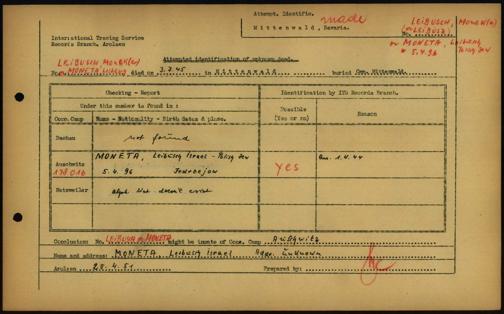 Attempt. Identific.
made
Mittenwald, Bavaria.
LEIBUSCH, MONE(A)
(or LEIBUS)
or MONETA, Leibusch
Polish Jew
5.4.96
International Tracing Service
Records Branch, Arolsen
Attempted identification of unknown dead.
LEIBUSH MONE(A)
No. or MONETA died on 3.7.45 in Mittenwald buried Cem. Mittenwald
Checking - Report
Identification by ITS Records Branch.
Under this number is found in :
Possible
(Yes or no)
Reason
Conc. Camp
Name - Nationality - Birth datum & place.
Dachau
not found
Auschwitz
MONETA, Leibusch Israel - Polish Jew
138016
5.4.96
yes
1.4.44
Natzweiler
alph. list doesn't exist
Conclusion: No. LEIBUSH or MONETA might be inmate of Conc. Camp Auschwitz
Name and address: MONETA Leibusch Israel Addr. Unknown
Arolsen 28.4.51 Prepared by: